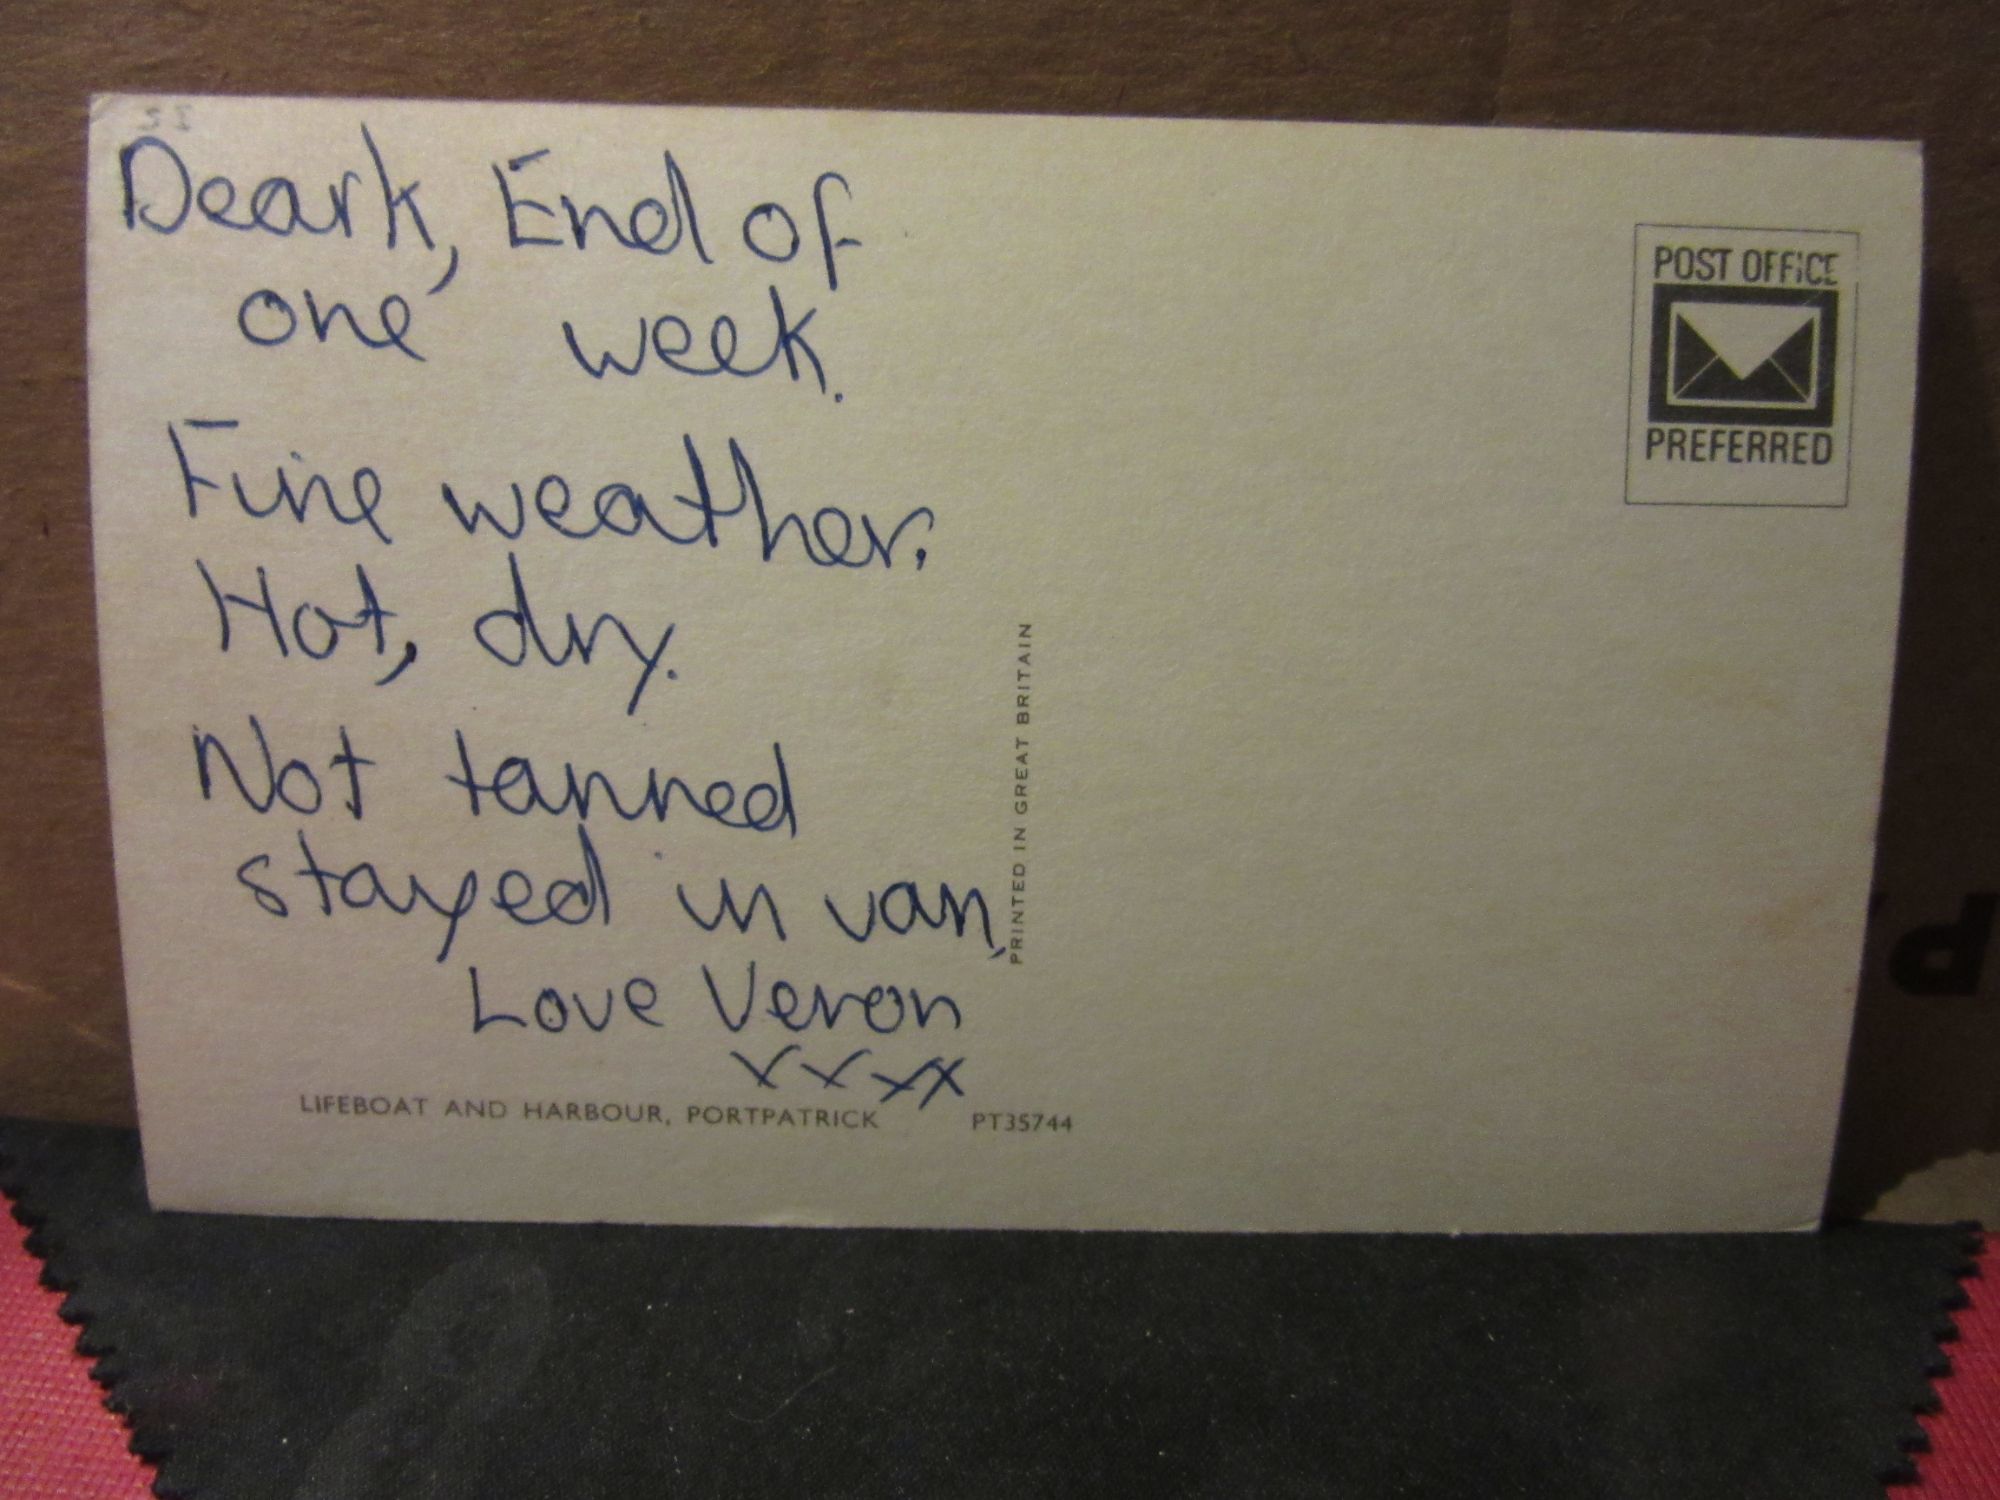 Deark, End of
one week.
Fine weather.
Hot, dry.
Not tanned
stayed in van.
Love Veron
xxxx
LIFEBOAT AND HARBOUR, PORTPATRICK PT35744
PRINTED IN GREAT BRITAIN
POST OFFICE
PREFERRED